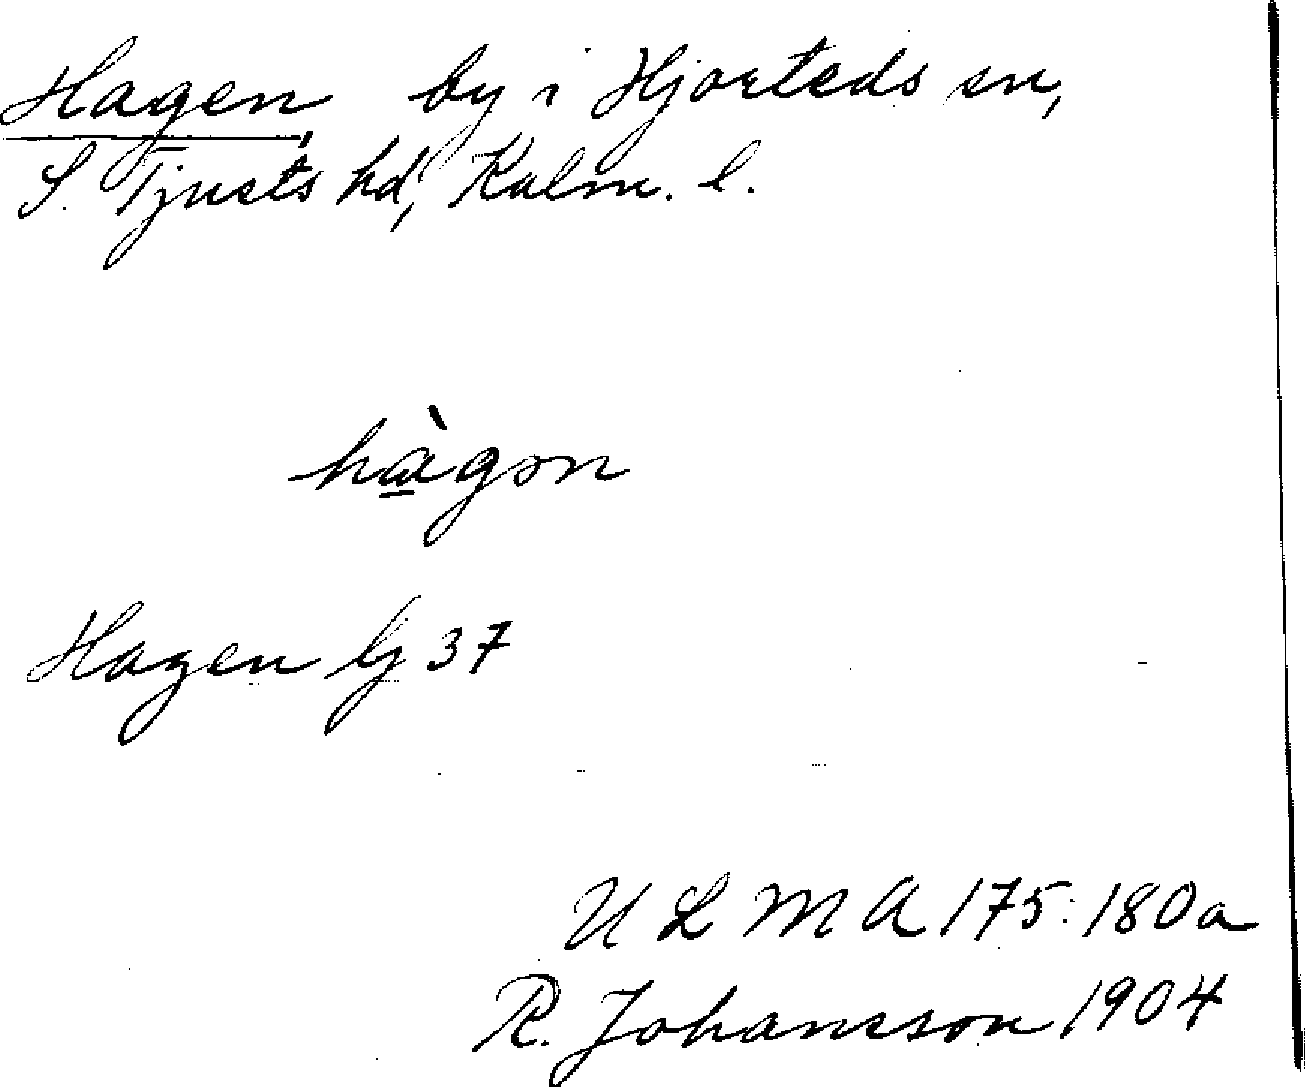 Hagen, by i Hjorteds sn,
S. Tjusts hd, Kalm. l.
hàgən
Hagen Gj 37
ULMA 175:180a
R. Johansson 1904